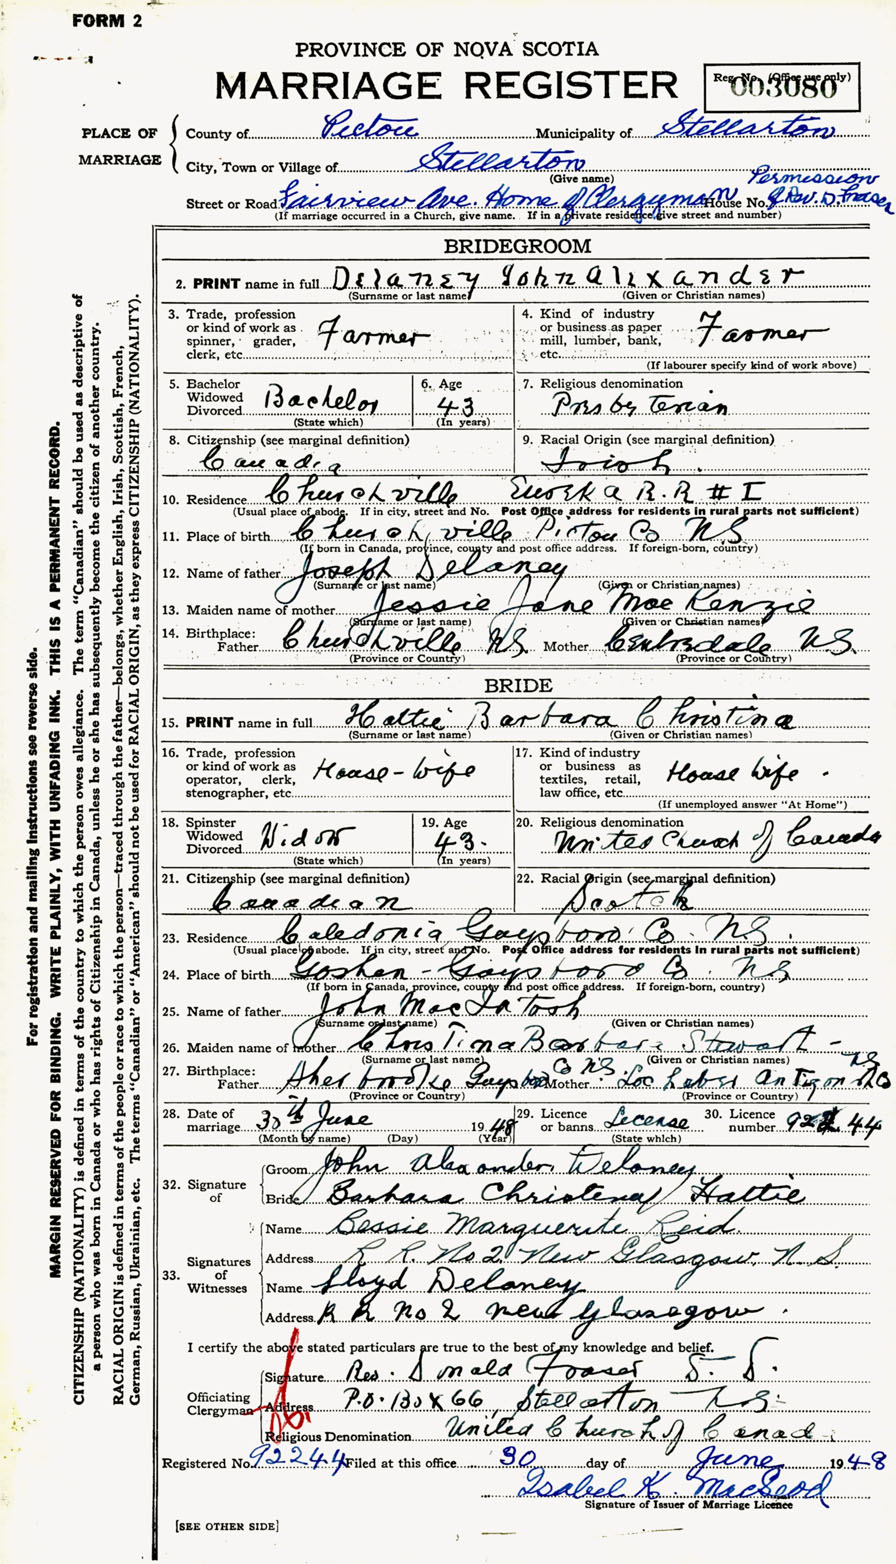 FORM 2
PROVINCE OF NOVA SCOTIA
MARRIAGE REGISTER
Reg. No. (Office use only)
003080
PLACE OF MARRIAGE
County of Pictou Municipality of Stellarton
City, Town or Village of Stellarton
(Give name)
Permission
Street or Road Fairview Ave. Home of Clergyman House No. of Rev. D. Fraser
(If marriage occurred in a Church, give name. If in a private residence give street and number)
BRIDEGROOM
2. PRINT name in full Delaney John Alexander
(Surname or last name) (Given or Christian names)
3. Trade, profession or kind of work as spinner, grader, clerk, etc. Farmer
4. Kind of industry or business as paper mill, lumber, bank, etc. Farmer
(If labourer specify kind of work above)
5. Bachelor Widowed Divorced Bachelor
(State which)
6. Age 43
(In years)
7. Religious denomination
Presbyterian
8. Citizenship (see marginal definition)
Canadia
9. Racial Origin (see marginal definition)
Irish.
10. Residence Churchville Eureka R.R # I
(Usual place of abode. If in city, street and No. Post Office address for residents in rural parts not sufficient)
11. Place of birth Churchville Pictou Co NS
(If born in Canada, province, county and post office address. If foreign-born, country)
12. Name of father Joseph Delaney
(Surname or last name) (Given or Christian names)
13. Maiden name of mother Jessie Jane MacKenzie
(Surname or last name) (Given or Christian names)
14. Birthplace: Father Churchville NS. Mother Centredale N.S.
(Province or Country) (Province or Country)
BRIDE
15. PRINT name in full Hattie Barbara Christina
(Surname or last name) (Given or Christian names)
16. Trade, profession or kind of work as operator, clerk, stenographer, etc. House-wife
17. Kind of industry or business as textiles, retail, law office, etc. House wife.
(If unemployed answer "At Home")
18. Spinster Widowed Divorced Widow
(State which)
19. Age 43.
(In years)
20. Religious denomination
United Church of Canada
21. Citizenship (see marginal definition)
Canadian
22. Racial Origin (see marginal definition)
Scotch
23. Residence Caledonia Guysboro Co. NS.
(Usual place of abode. If in city, street and No. Post Office address for residents in rural parts not sufficient)
24. Place of birth Goshen - Guysboro Co. NS
(If born in Canada, province, county and post office address. If foreign-born, country)
25. Name of father John MacIntosh
(Surname or last name) (Given or Christian names)
26. Maiden name of mother Christina Barbara Stewart -
(Surname or last name) (Given or Christian names)
27. Birthplace: Father Sherbrooke Guysboro Co NS. Mother Antigonish Co NS
(Province or Country) (Province or Country)
28. Date of marriage 30th June 1948
(Month by name) (Day) (Year)
29. Licence or banns License
(State which)
30. Licence number 92244
32. Signature of
Groom John Alexander Delaney
Bride Barbara Christena Hattie
33. Signatures of Witnesses
Name Bessie Marguerite Reid.
Address R R. No 2 New Glasgow, N S
Name Lloyd Delaney
Address R R No 2 new Glasegow.
I certify the above stated particulars are true to the best of my knowledge and belief.
Officiating Clergyman
Signature Rev. Donald Fraser D. D.
Address P.O. Box 66, Stellarton N.S.
Religious Denomination United Church of Canada
Registered No. 92244 Filed at this office 30 day of June 1948
Isabel K. MacLeod
Signature of Issuer of Marriage Licence
[SEE OTHER SIDE]
For registration and mailing instructions see reverse side.
MARGIN RESERVED FOR BINDING. WRITE PLAINLY, WITH UNFADING INK. THIS IS A PERMANENT RECORD.
CITIZENSHIP (NATIONALITY) is defined in terms of the country to which the person owes allegiance. The term "Canadian" should be used as descriptive of
a person who was born in Canada or who has rights of Citizenship in Canada, unless he or she has subsequently become the citizen of another country.
RACIAL ORIGIN is defined in terms of the people or race to which the person—traced through the father—belongs, whether English, Irish, Scottish, French,
German, Russian, Ukrainian, etc. The terms "Canadian" or "American" should not be used for RACIAL ORIGIN, as they express CITIZENSHIP (NATIONALITY).